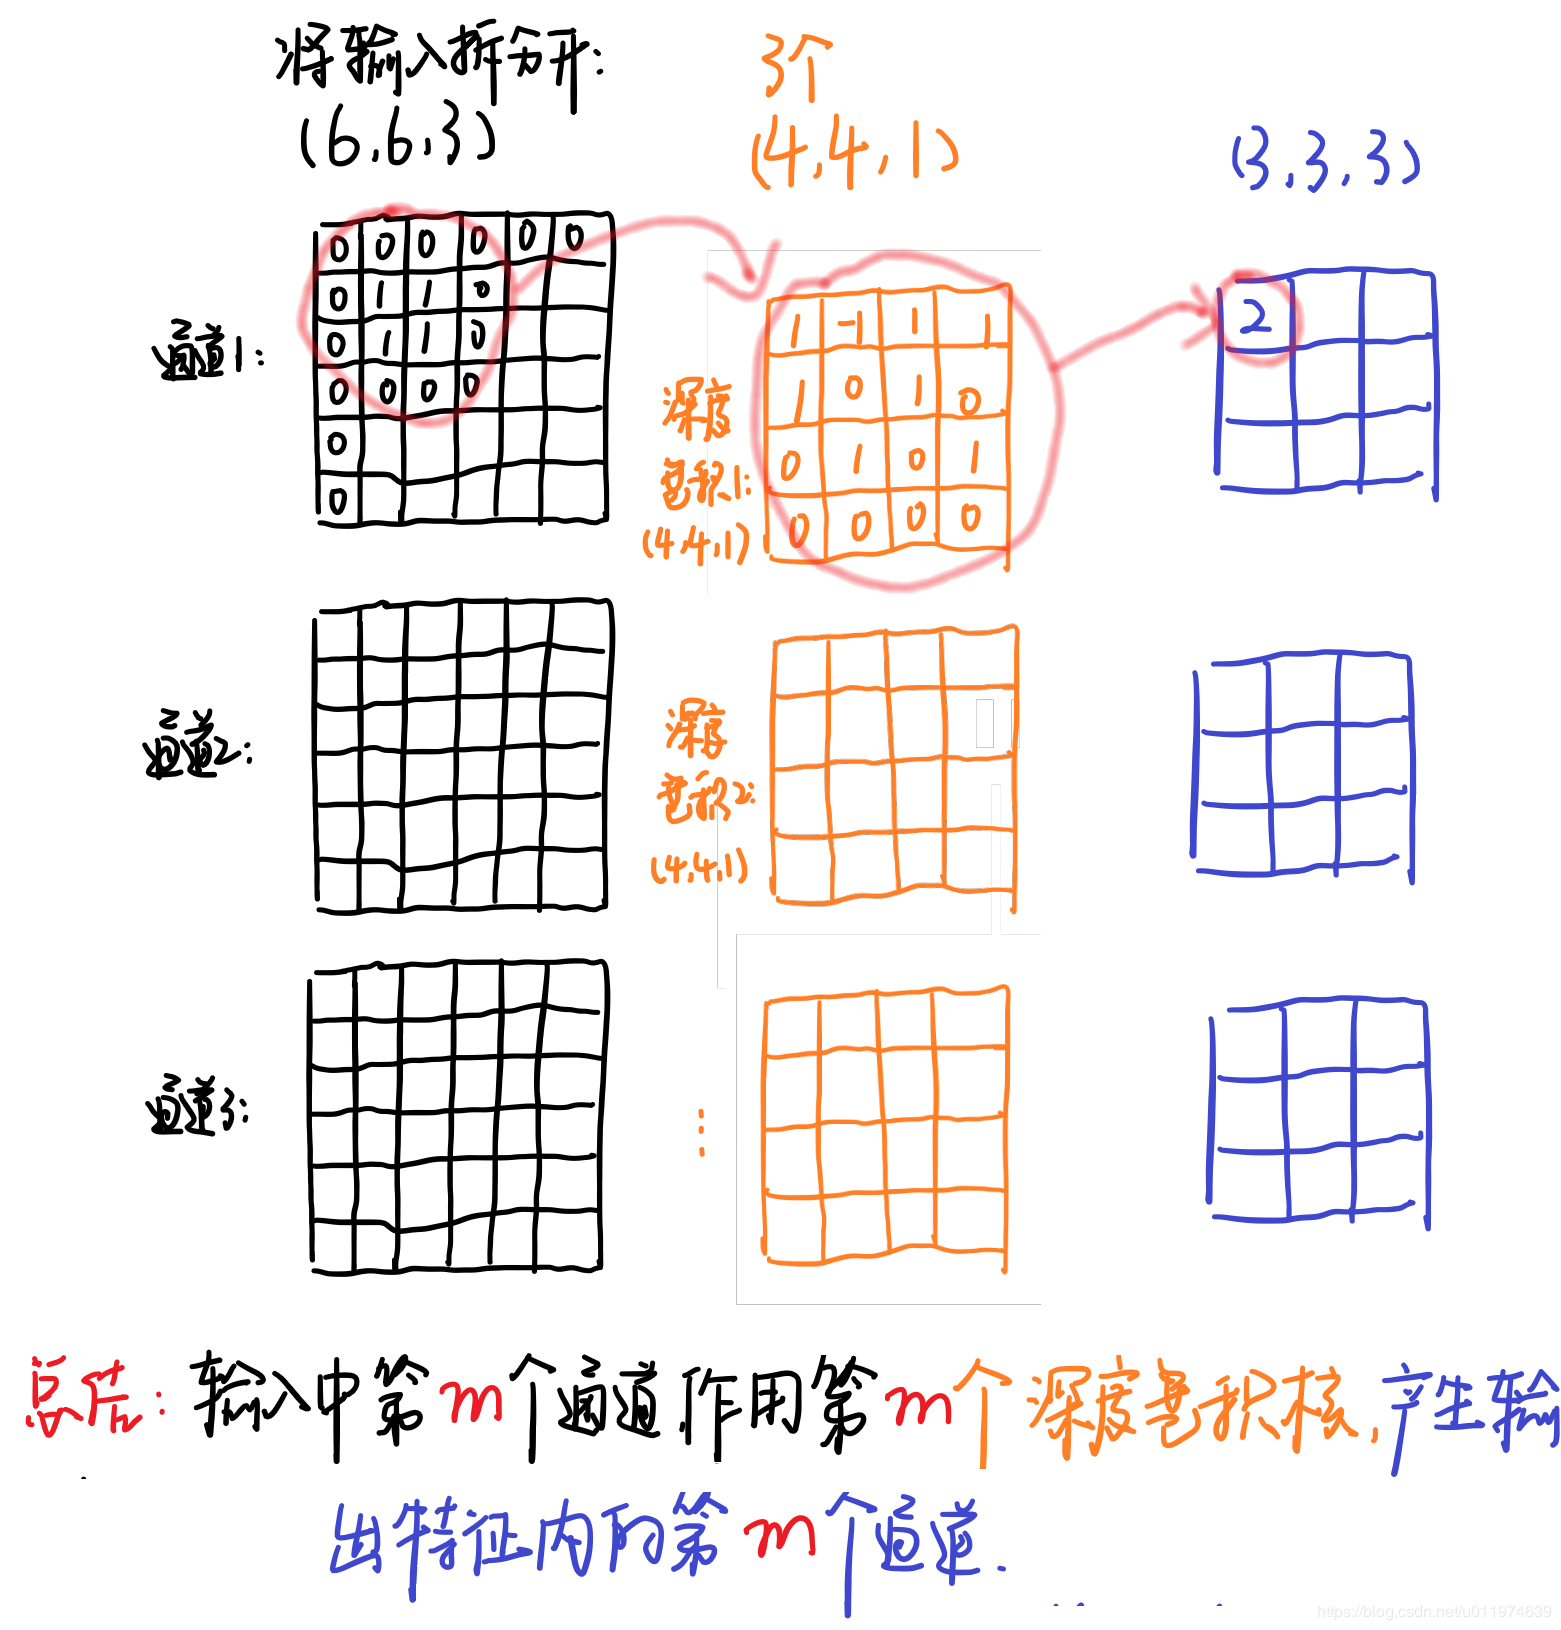 将输入拆分开:
(6,6,3)
3个
(4,4,1)
(3,3,3)
通道1:
0 0 0 0 0 0
0 1 1 0
0 1 1 0
0 0 0 0
0
0
深度
卷积1:
(4,4,1)
1 -1 1 1
1 0 1 0
0 1 0 1
0 0 0 0
2
通道2:
深度
卷积2:
(4,4,1)
通道3:
⋮
总结: 输入中第m个通道,作用第m个深度卷积核,产生输
出特征内的第m个通道.
https://blog.csdn.net/u011974639